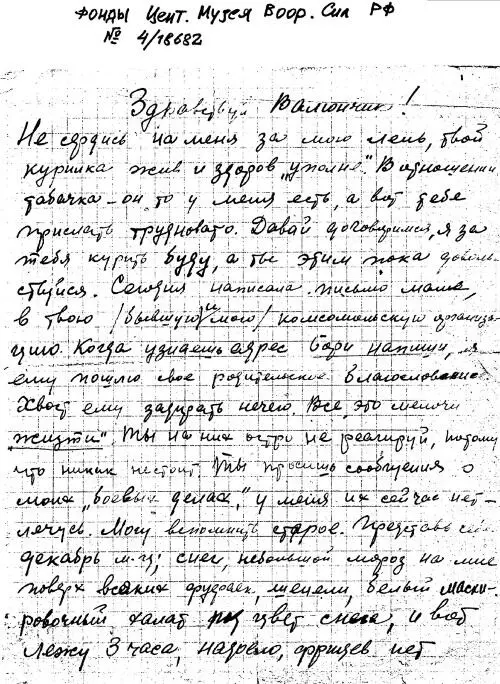 ФОНДЫ ЦЕНТ. МУЗЕЯ ВООР. СИЛ РФ
№ 4/18682
Здравствуй Валюнчик!
Не сердись на меня за мою лень, твой
курилка жив и здоров "уполне". В отношении
табачка – он то у меня есть, а вот тебе
прислать трудновато. Давай договоримся, я за
тебя курить буду, а ты этим пока доволь-
ствуйся. Сегодня написала письмо маме,
в твою /бывшую и мою/ комсомольскую организа-
цию. Когда узнаешь адрес Бори напиши, я
ему пошлю свое родительское благословение.
Хвост ему задирать нечего. Все это мелочи
жизти". Ты на них остро не реагируй, потому
что никак не стоит. Ты просишь сообщения о
моих "боевых делах," у меня их сейчас нет –
лечусь. Могу вспомнить старое. Представь себе
декабрь м-ц; снег, небольшой мороз на мне
поверх всяких фуфаек, шинели, белый маски-
ровочный халат под цвет снега, и вот
лежу 3 часа, надоело, фрицев нет